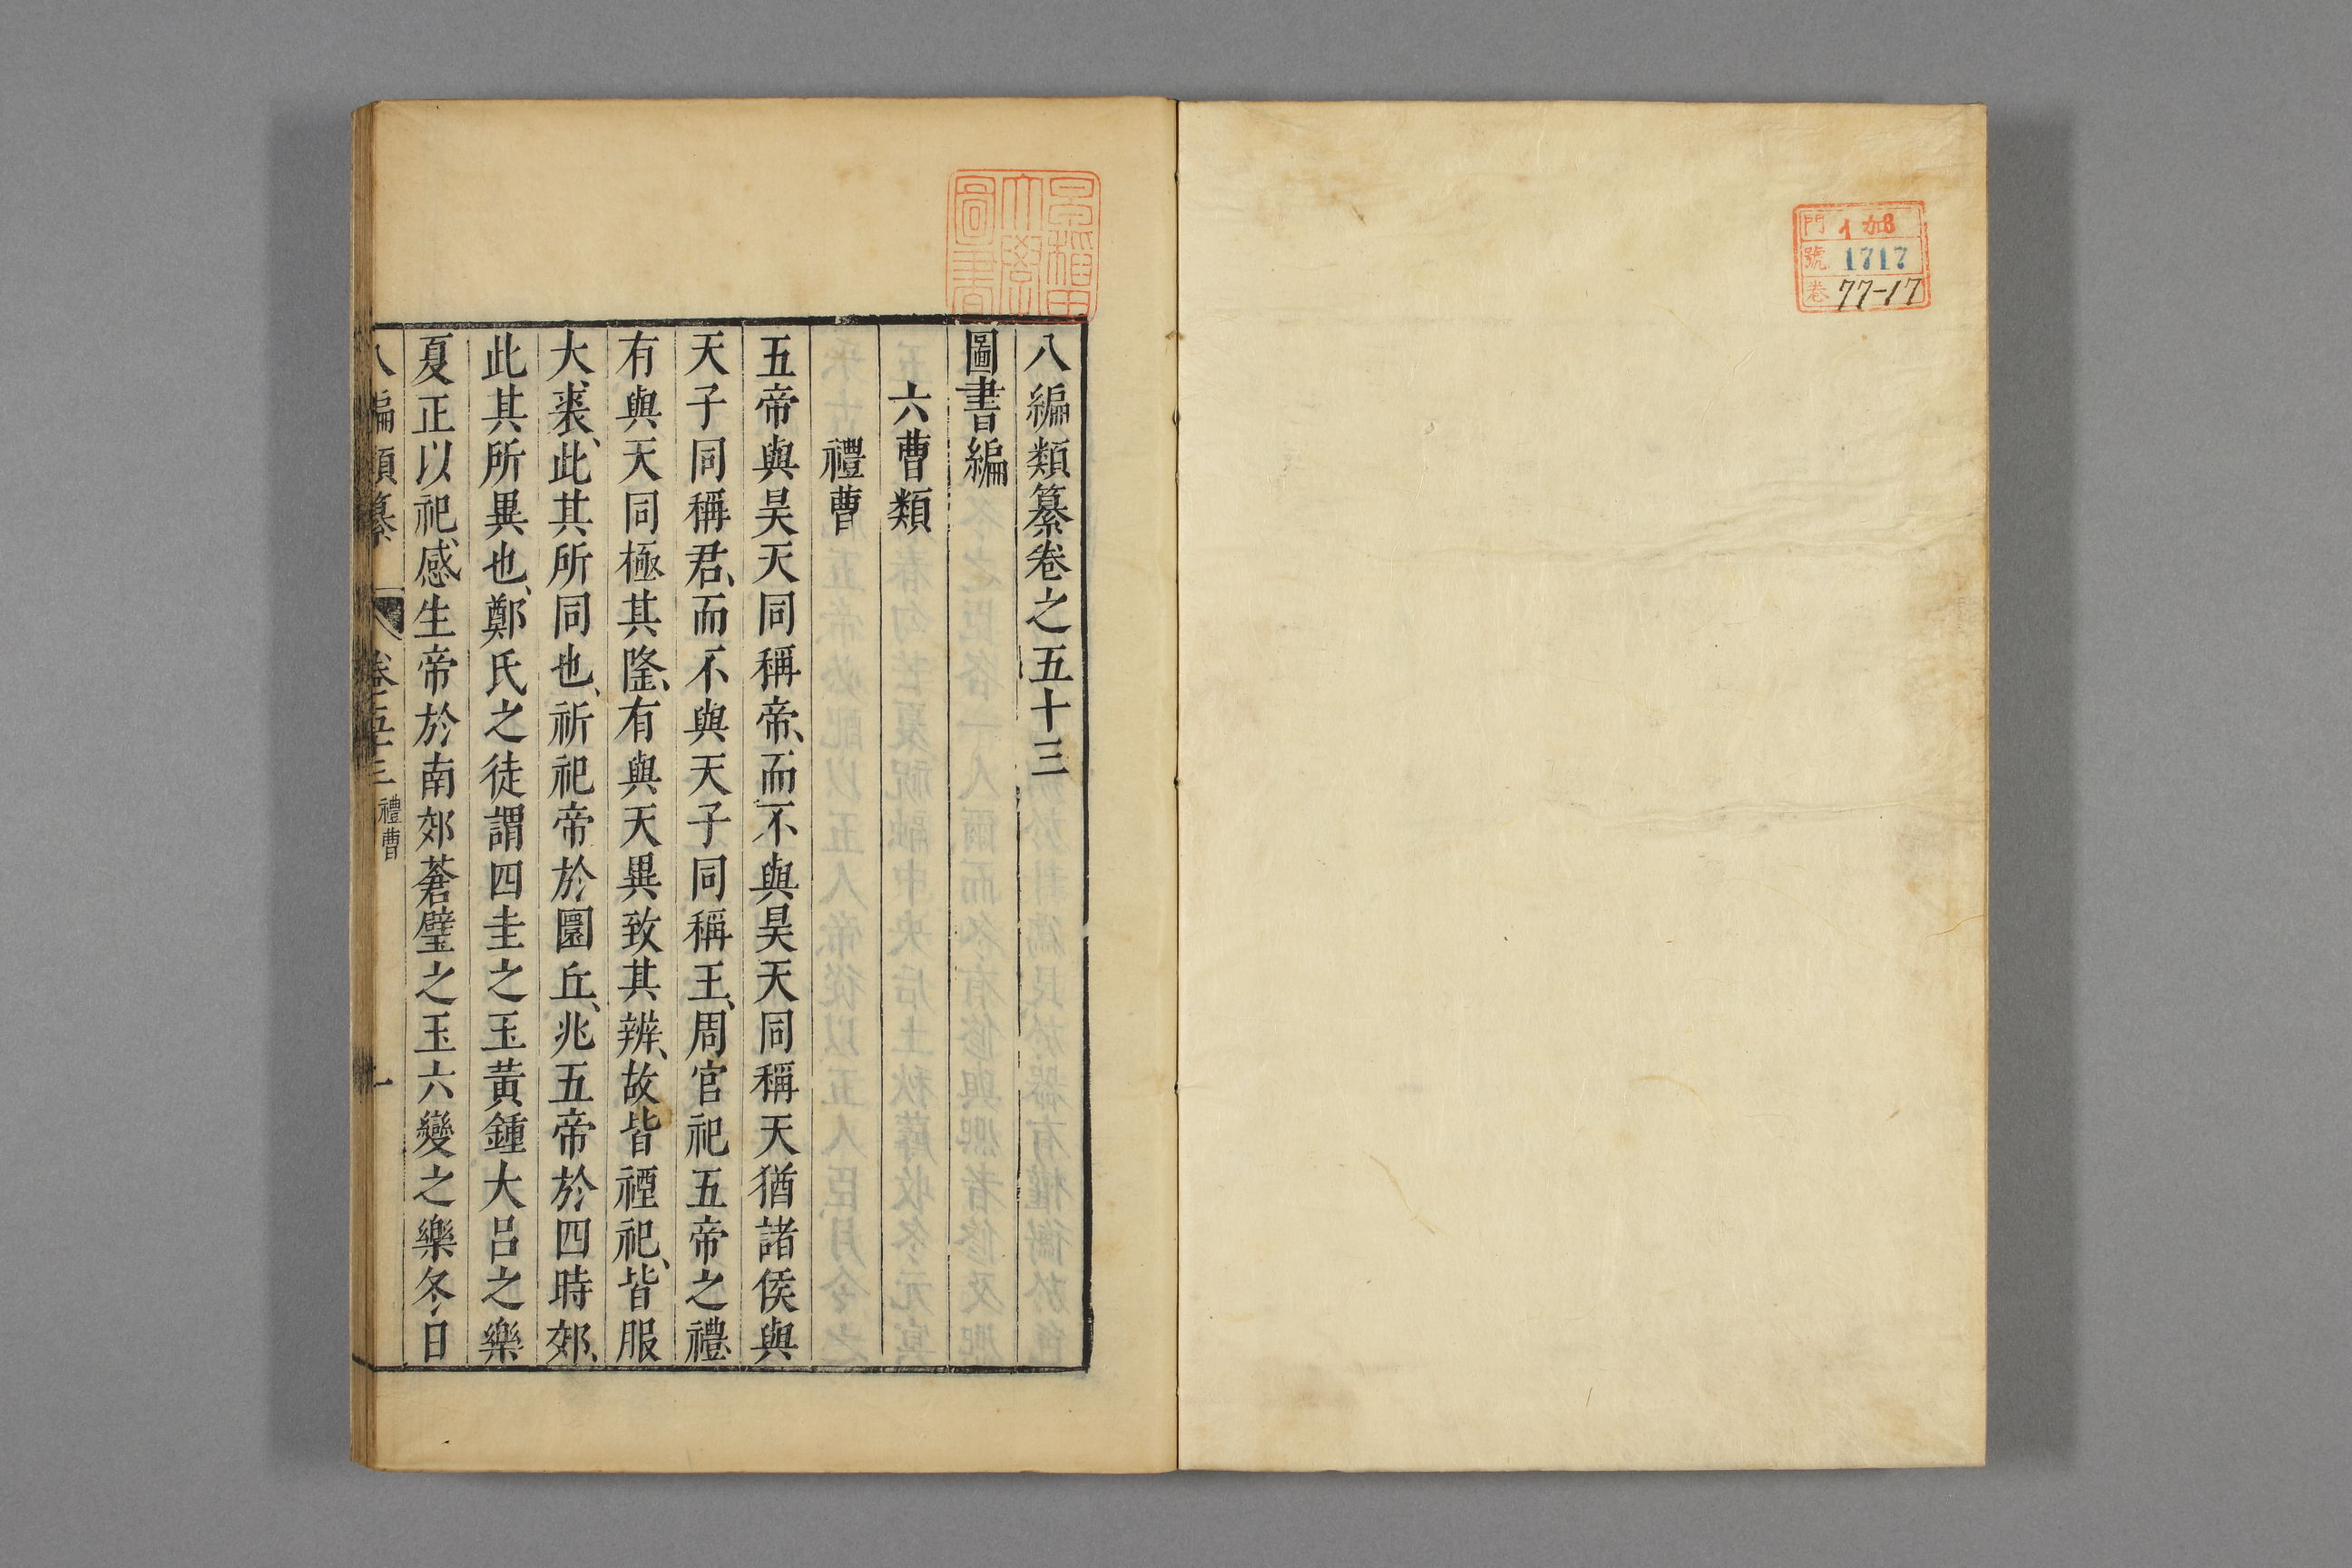 門 イ 加8
號 1717
卷 77-17
早稲田大學圖書
八編類纂卷之五十三
圖書編
六曹類
禮曹
五帝與昊天同稱帝、而不與昊天同稱天猶諸侯與
天子同稱君、而不與天子同稱王、周官祀五帝之禮
有與天同極其隆、有與天異致其辨、故皆禋祀、皆服
大裘、此其所同也、祈祀帝於圜丘、兆五帝於四時郊、
此其所異也、鄭氏之徒謂四圭之玉黃鍾大呂之樂
夏正以祀感生帝於南郊蒼璧之玉六變之樂冬日
八編類纂 卷五十三 禮曹 一